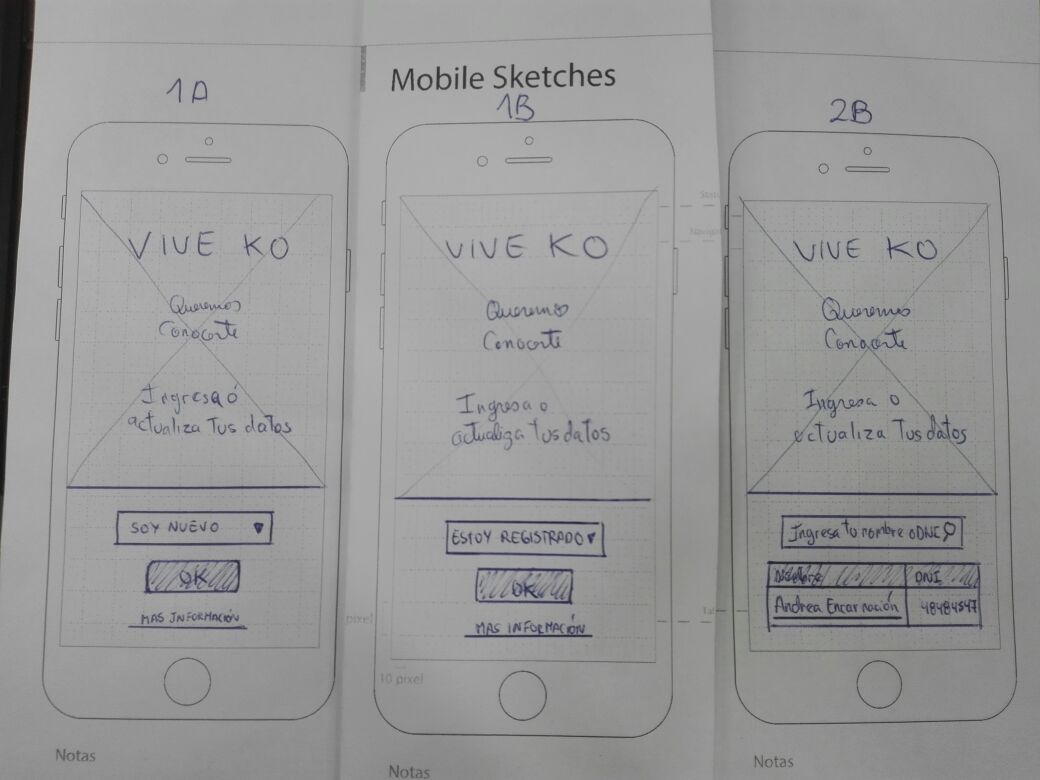 Mobile Sketches
1A
VIVE KO
Queremos
Conocerte
Ingresa ó
actualiza Tus datos
SOY NUEVO
OK
MAS INFORMACIÓN
Notas
1B
VIVE KO
Queremos
Conocerte
Ingresa o
actualiza Tus datos
ESTOY REGISTRADO
OK
MAS INFORMACIÓN
pixel
10 pixel
Notas
2B
VIVE KO
Queremos
Conocerte
Ingresa o
actualiza Tus datos
Ingresa tu nombre o DNI
Nombre DNI
Andrea Encarnación 48484547
Notas